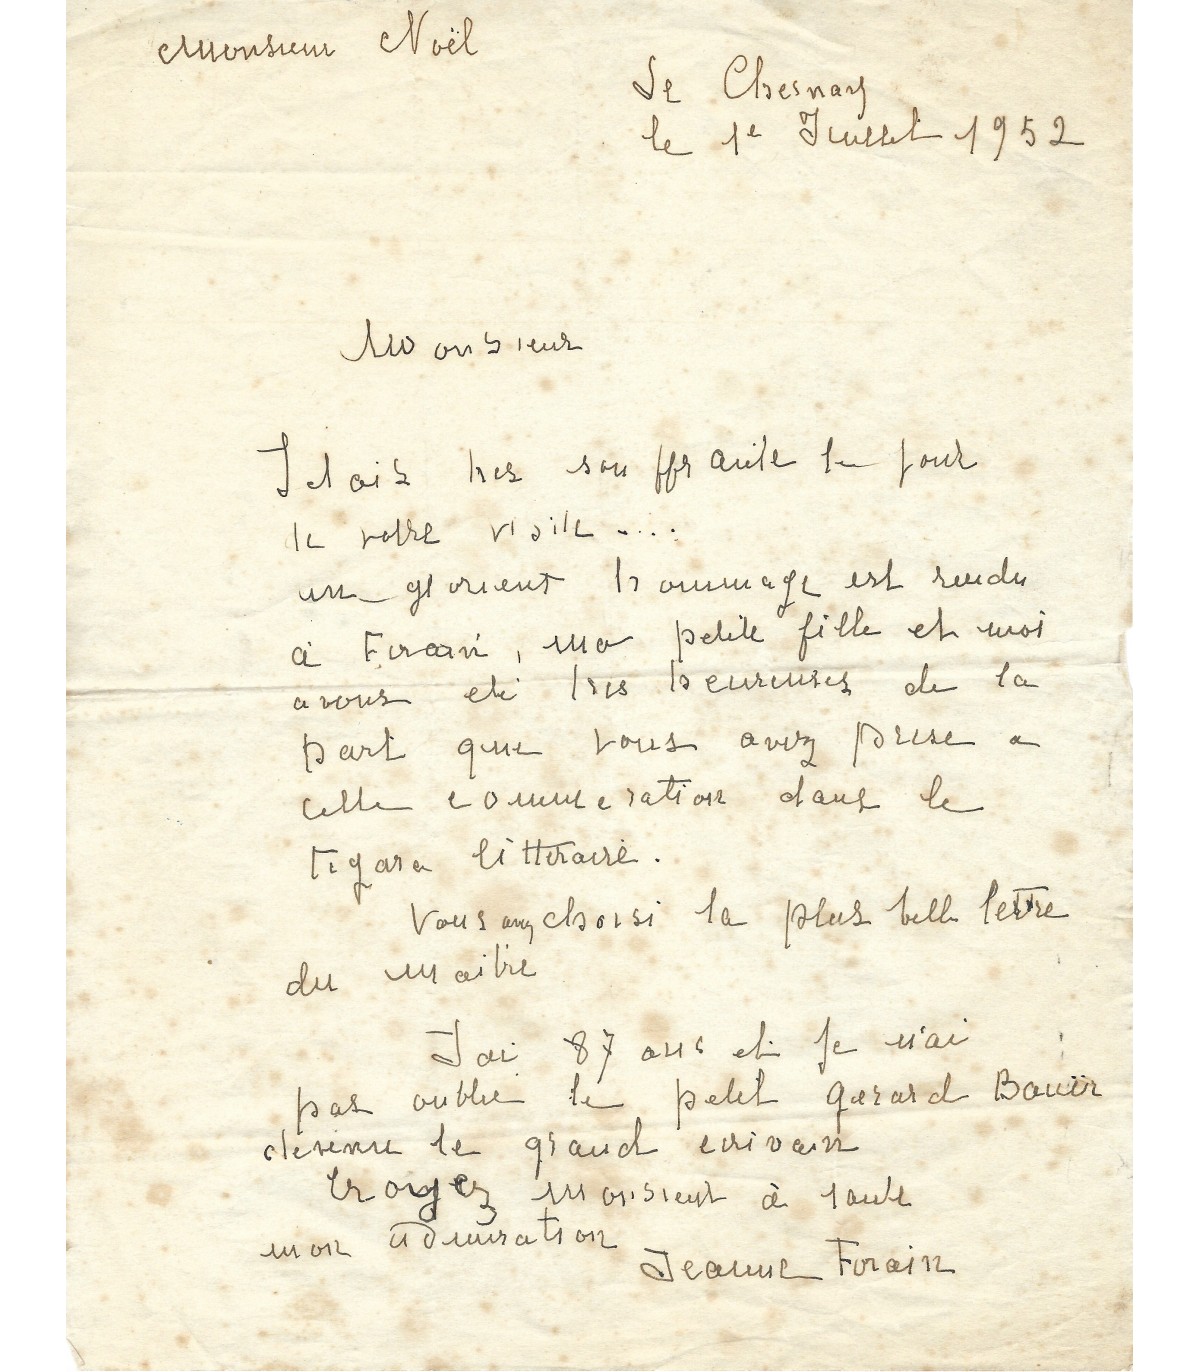 Monsieur Noël
Le Chesnay
le 1e Juillet 1952
Monsieur
J'etais tres souffrante le jour
de votre visite ....
un glorieux hommage est rendu
à Forain, ma petite fille et moi
avons eté tres heureuses de la
part que vous avez prise a
cette commeration dans le
Figaro littéraire.
Vous avez choisi la plus belle lettre
du maitre
J'ai 87 ans et je n'ai
pas oublie le petit Gerard Bauër
devenu le grand ecrivain
Croyez monsieur à toute
mon admiration
Jeanne Forain